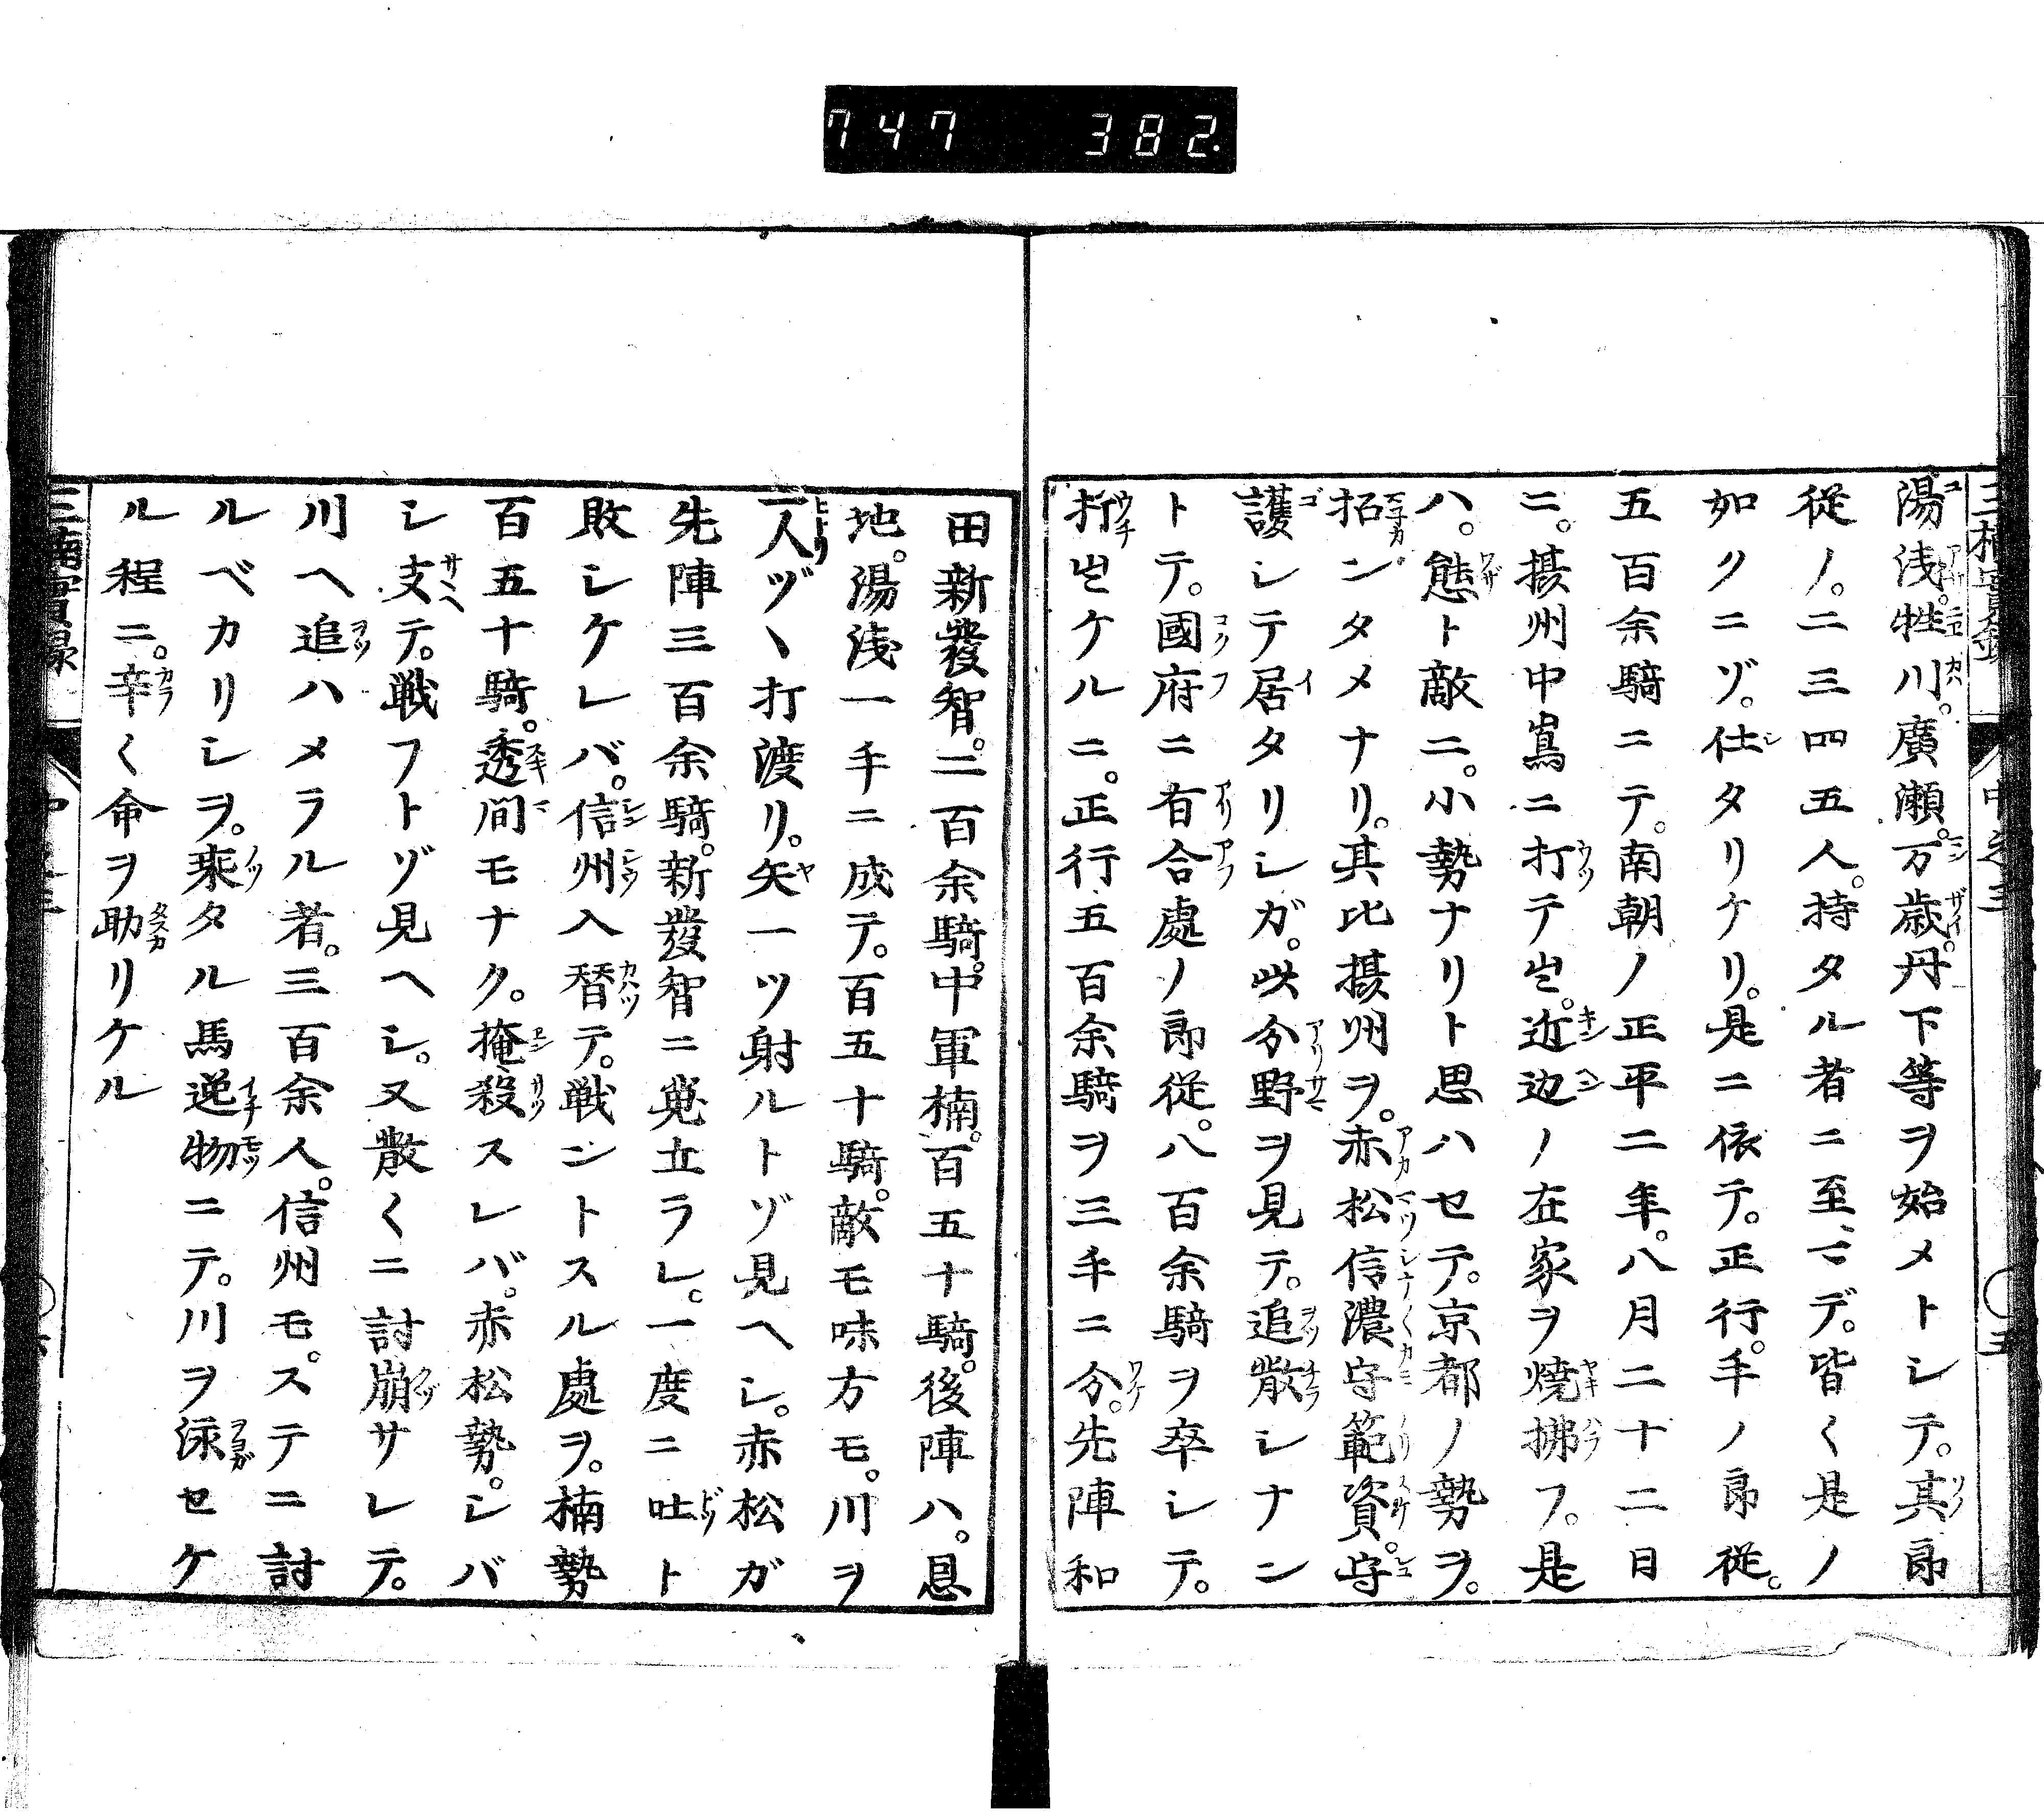 747 382.
湯浅。牲川。廣瀬。万歳。丹下等ヲ始メトシテ。其郎
従ノ。二三四五人。持タル者ニ至マデ。皆く是ノ
如クニゾ。仕タリケリ。是ニ依テ。正行。手ノ郎従。
五百余騎ニテ。南朝ノ正平二年。八月二十二日
ニ。摂州中嶌ニ打テ出。近辺ノ在家ヲ焼拂フ。是
ハ。態ト敵ニ。小勢ナリト思ハセテ。京都ノ勢ヲ。
招ンタメナリ。其比摂州ヲ。赤松信濃守範資。守
護シテ居タリシガ。此分野ヲ見テ。追散シナン
トテ。國府ニ有合處ノ郎従。八百余騎ヲ卒シテ。
打出ケルニ。正行五百余騎ヲ三手ニ分。先陣和
田新發智。二百余騎。中軍楠。百五十騎。後陣ハ。恩
地。湯浅一手ニ成テ。百五十騎。敵モ味方モ。川ヲ
一人ヅヽ打渡リ。矢一ツ射ルトゾ見ヘシ。赤松ガ
先陣三百余騎。新發智ニ覺立ラレ。一度ニ吐ト
敗シケレバ。信州入替テ。戦ントスル處ヲ。楠勢
百五十騎。透間モナク。掩殺スレバ。赤松勢。シバ
シ支テ。戦フトゾ見ヘシ。又散くニ討崩サレテ。
川ヘ追ハメラル者。三百余人。信州モ。ステニ討
ルベカリシヲ。乗タル馬逸物ニテ。川ヲ泳セケ
ル程ニ。辛く命ヲ助リケル
三楠實録